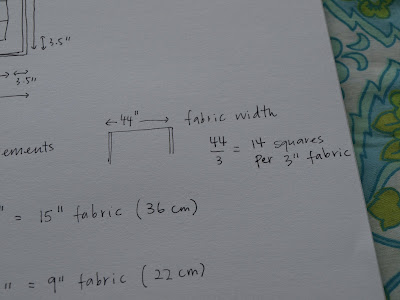 3.5"
3.5"
44" fabric width
44/3 = 14 squares
per 3" fabric
ements
" = 15" fabric (36 cm)
" = 9" fabric (22 cm)